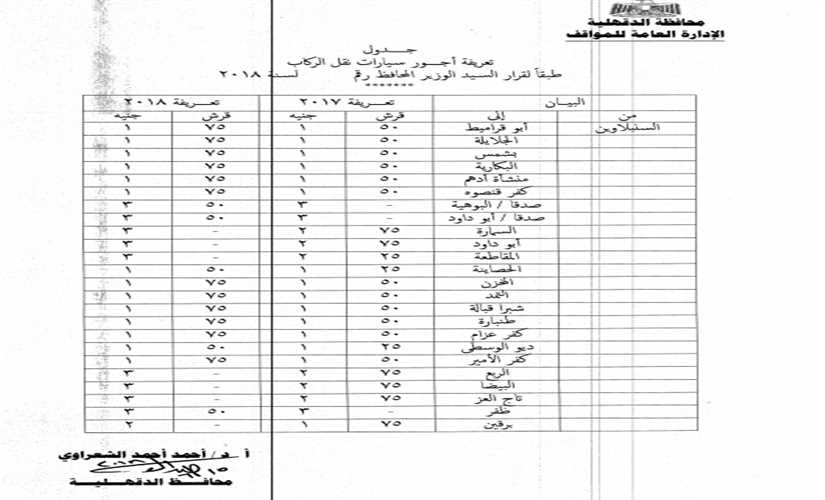 محافظة الدقهلية
الإدارة العامة للمواقف
جدول
تعريفة أجور سيارات نقل الركاب
طبقاً لقرار السيد الوزير المحافظ رقم لسنة ٢٠١٨
*******
البيان تعريفة ٢٠١٧ تعريفة ٢٠١٨
من إلى قرش جنيه قرش جنيه
السنبلاوين أبو قراميط ٥٠ ١ ٧٥ ١
الجلايلة ٥٠ ١ ٧٥ ١
بشمس ٥٠ ١ ٧٥ ١
البكارية ٥٠ ١ ٧٥ ١
منشأة أدهم ٥٠ ١ ٧٥ ١
كفر قنصوه ٥٠ ١ ٧٥ ١
صدقا / البوهية - ٣ ٥٠ ٣
صدقا / أبو داود - ٣ ٥٠ ٣
السمارة ٧٥ ٢ - ٣
أبو داود ٧٥ ٢ - ٣
المقاطعة ٢٥ ٢ - ٣
الحصاينة ٢٥ ١ ٥٠ ١
المخزن ٥٠ ١ ٧٥ ١
الثمد ٥٠ ١ ٧٥ ١
شبرا قبالة ٥٠ ١ ٧٥ ١
طنبارة ٥٠ ١ ٧٥ ١
كفر عزام ٥٠ ١ ٧٥ ١
ديو الوسطى ٢٥ ١ ٥٠ ١
كفر الأمير ٥٠ ١ ٧٥ ١
الربع ٧٥ ٢ - ٣
البيضا ٧٥ ٢ - ٣
تاج العز ٧٥ ٢ - ٣
ظفر - ٣ ٥٠ ٣
برقين ٧٥ ١ - ٢
أ د / أحمد أحمد الشعراوي
محافظ الدقهلية